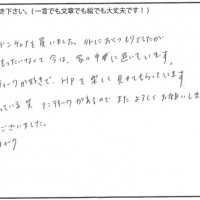 き下さい。(一言でも文章でも絵でも大丈夫です!)
デンチェアを買いました。外におくつもりでしたが
もったいなくて今は、家の中に置いています。
ティークが好きで、HPを楽しく見せてもらっています
っている アンティークがあるので またよろしくお願いしま
ございました。